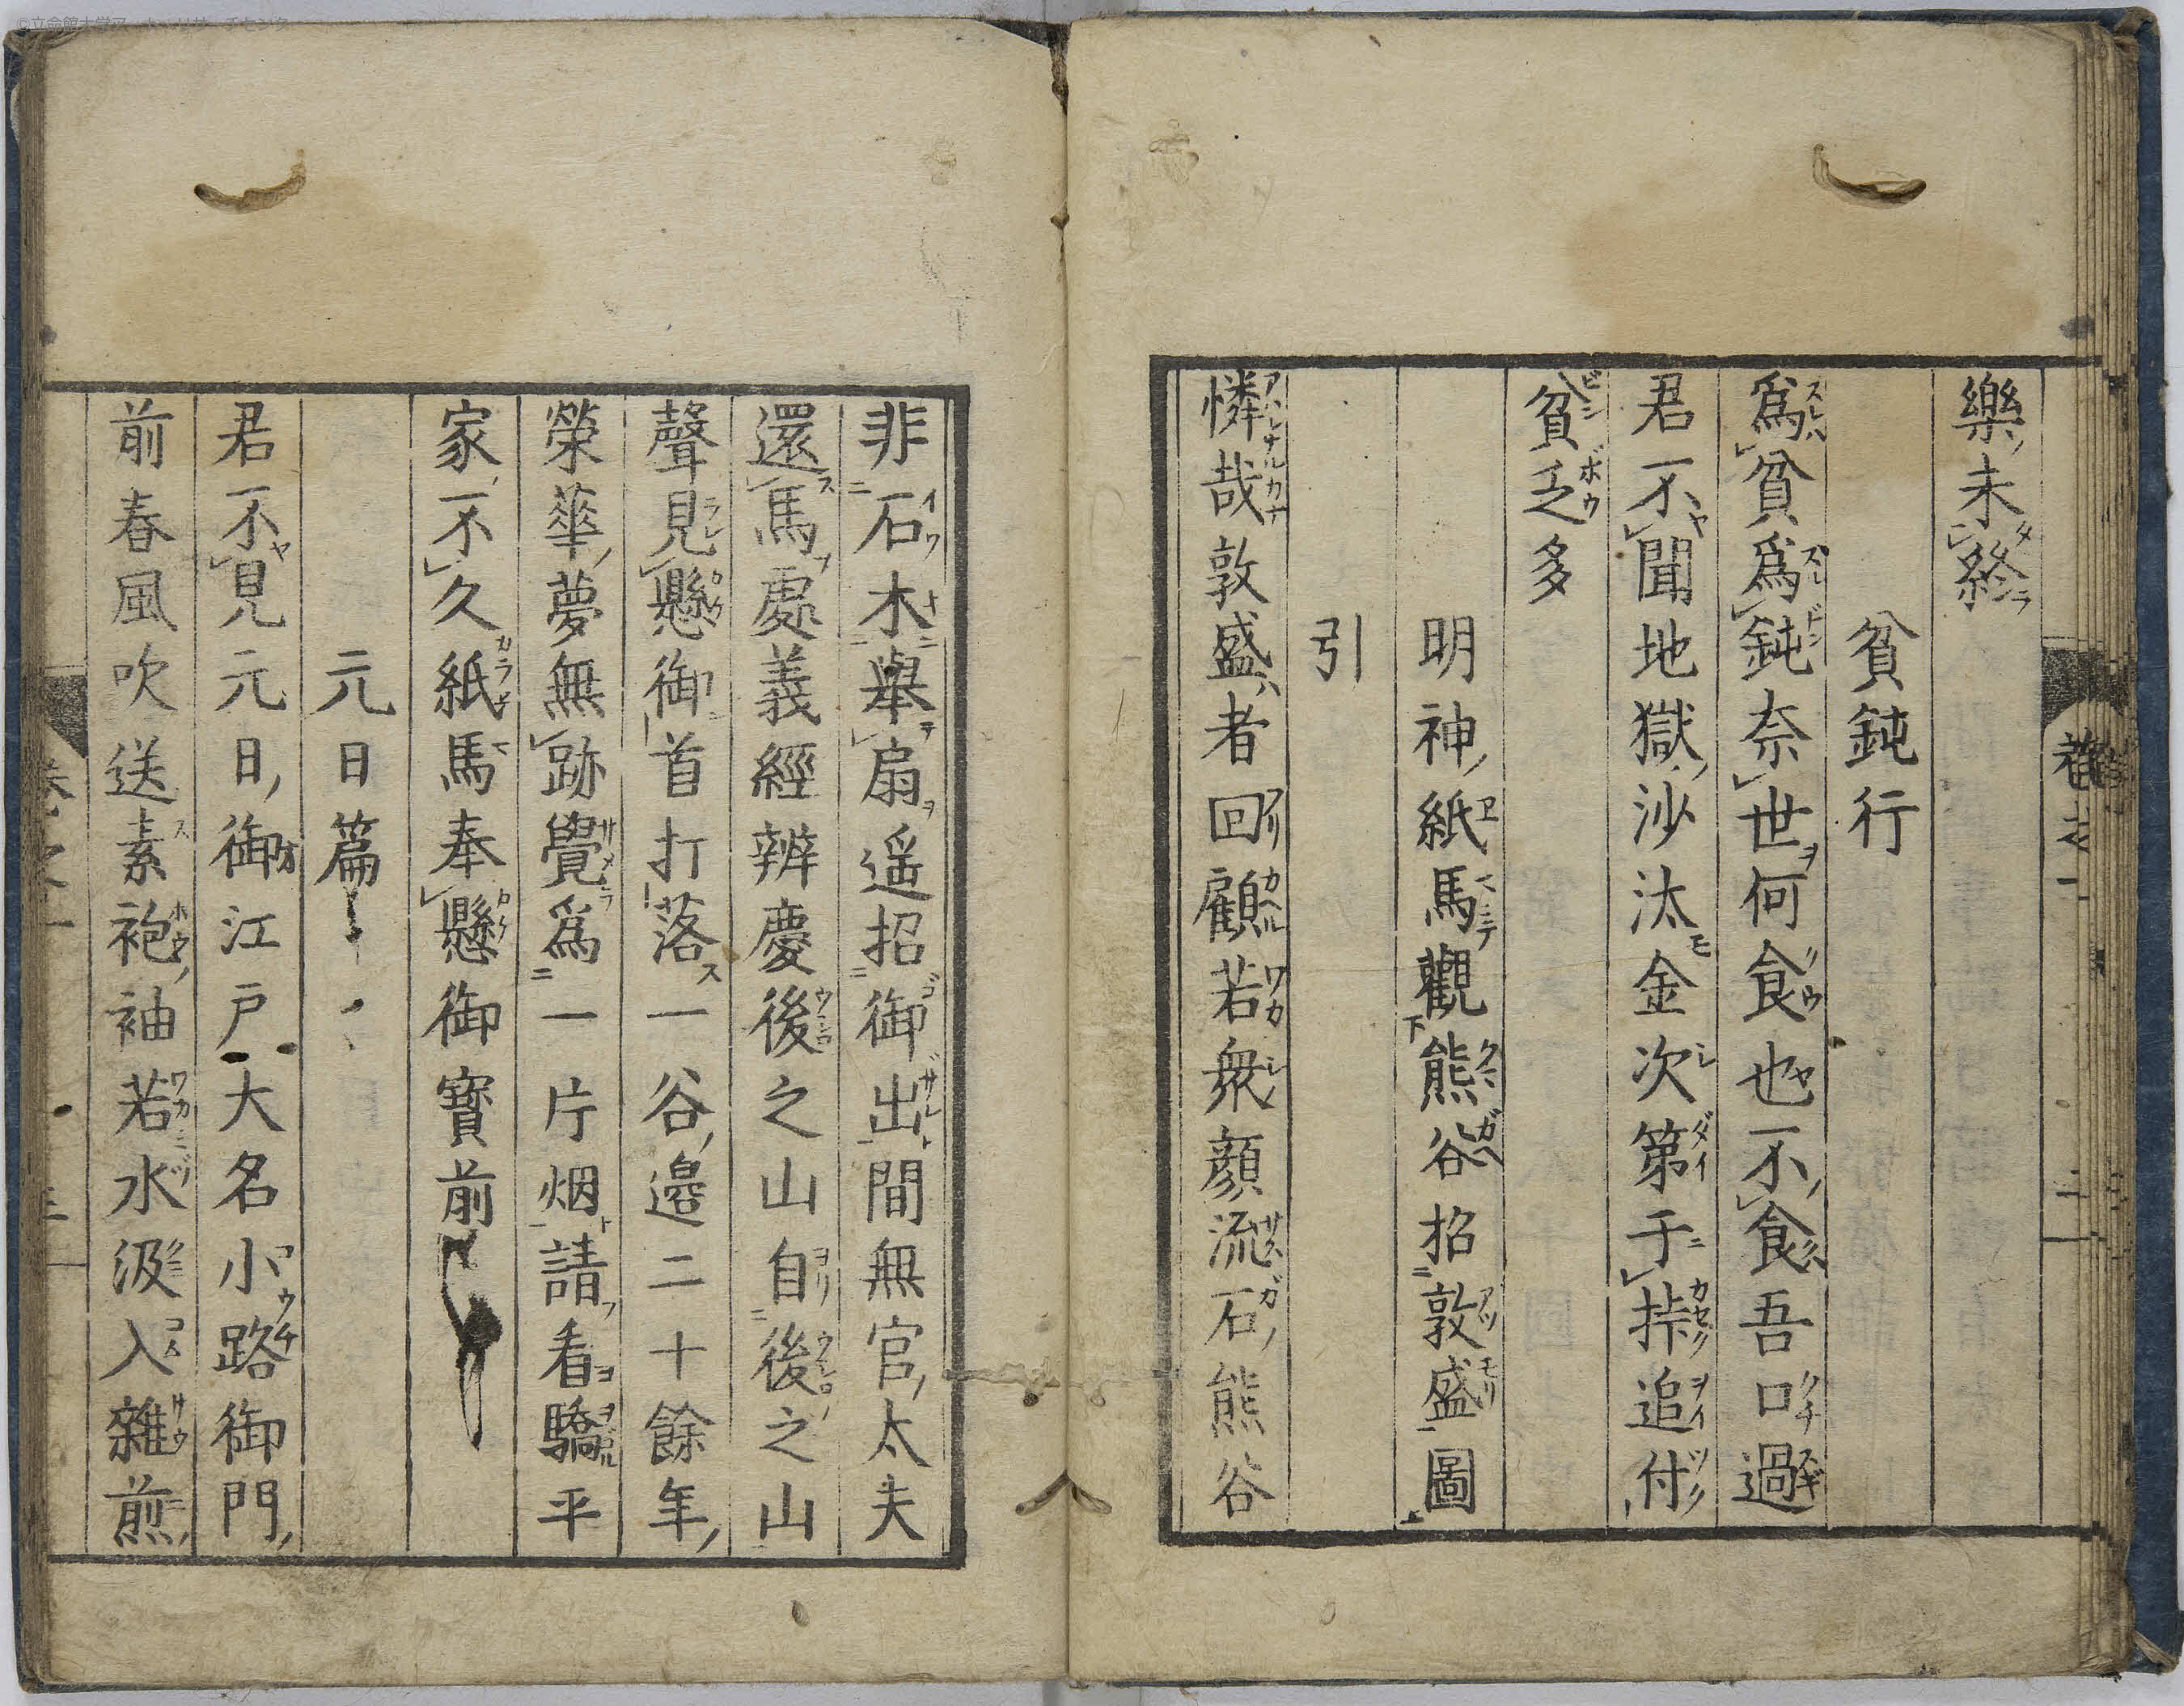 樂未終
貧鈍行
爲貧爲鈍奈世何食也不食吾口過
君不聞地獄沙汰金次第于挊追付
貧乏多
明神紙馬觀熊谷招敦盛圖
引
憐哉敦盛者回顧若衆顔流石熊谷
非石木擧扇遥招御出間無官太夫
還馬處義經辨慶後之山自後之山
聲見懸御首打落一谷邉二十餘年
榮華夢無跡覺爲一片烟請看驕平
家不久紙馬奉懸御寳前
元日篇
君不見元日御江戸大名小路御門
前春風吹送素袍袖若水汲入雜煎